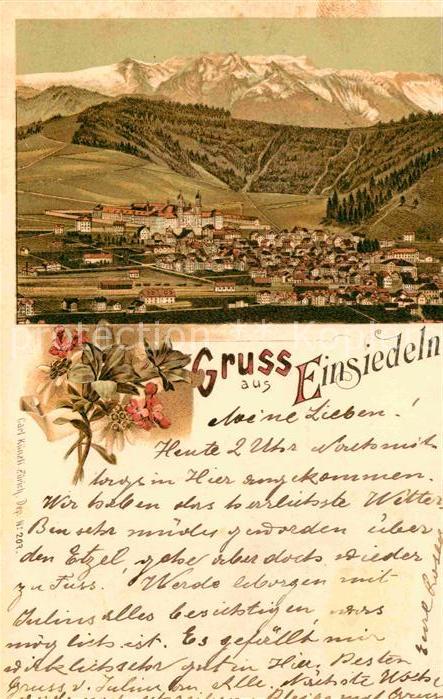 Gruss
aus
Einsiedeln
Meine Lieben!
Heute 2 Uhr Nachmit
tags in Hier angekommen.
Wir haben das herrlichste Wetter
Bin sehr müde geworden über
den Etzel, gehe aber doch wieder
zu Fuss. Werde Morgen mit
Julius alles besichtigen, was
möglich ist. Es gefällt mir
wirklich sehr gut in Hier. Besten
Gruss v. Julius an Alle. Nächste Woch
Carl Künzli, Zürich, Dep. No 207.
protection